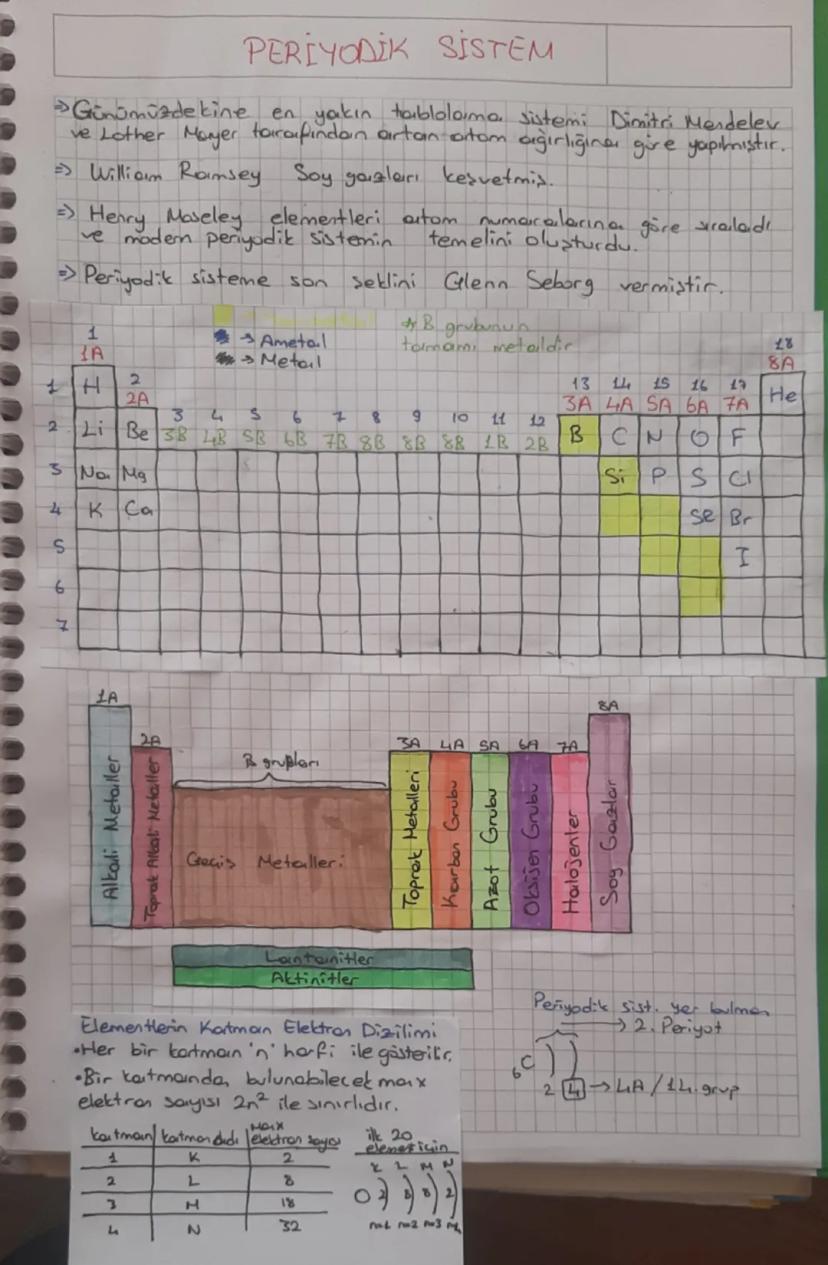 PERİYODİK SİSTEM
⇒ Günümüzdekine en yakın tablolama sistemi Dimitri Mendelev
ve Lother Mayer tarafından artan atom ağırlığına göre yapılmıştır.
⇒ William Ramsey Soy gazları keşvetmiş.
⇒ Henry Moseley elementleri atom numaralarına göre sıraladı
ve modern periyodik sistemin temelini oluşturdu.
⇒ Periyodik sisteme son şeklini Glenn Seborg vermiştir.
→ Ametal
→ Metal
* B grubunun
tamamı metaldir
1 18
1A 8A
1 H 2 13 14 15 16 17 He
2A 3A 4A 5A 6A 7A
3 4 5 6 7 8 9 10 11 12
2 Li Be 3B 4B 5B 6B 7B 8B 8B 8B 1B 2B B C N O F
3 Na Mg Si P S Cl
4 K Ca Se Br
5 I
6
7
1A 2A 3A 4A 5A 6A 7A 8A
B grupları
Alkali Metaller
Toprak Alkali Metaller
Geçiş Metalleri
Toprak Metalleri
Karbon Grubu
Azot Grubu
Oksijen Grubu
Halojenler
Soy Gazlar
Lantanitler
Aktinitler
Elementlerin Katman Elektron Dizilimi
• Her bir katman 'n' harfi ile gösterilir.
• Bir katmanda bulunabilecek max
elektron sayısı 2n² ile sınırlıdır.
katman katman adı Max elektron sayısı
1 K 2
2 L 8
3 M 18
4 N 32
ilk 20
element için
K L M N
O 2) 8) 8) 2)
n=1 n=2 n=3
Periyodik sist. yer bulma
→ 2. Periyot
₆C ) )
2 4 → 4A / 14. grup